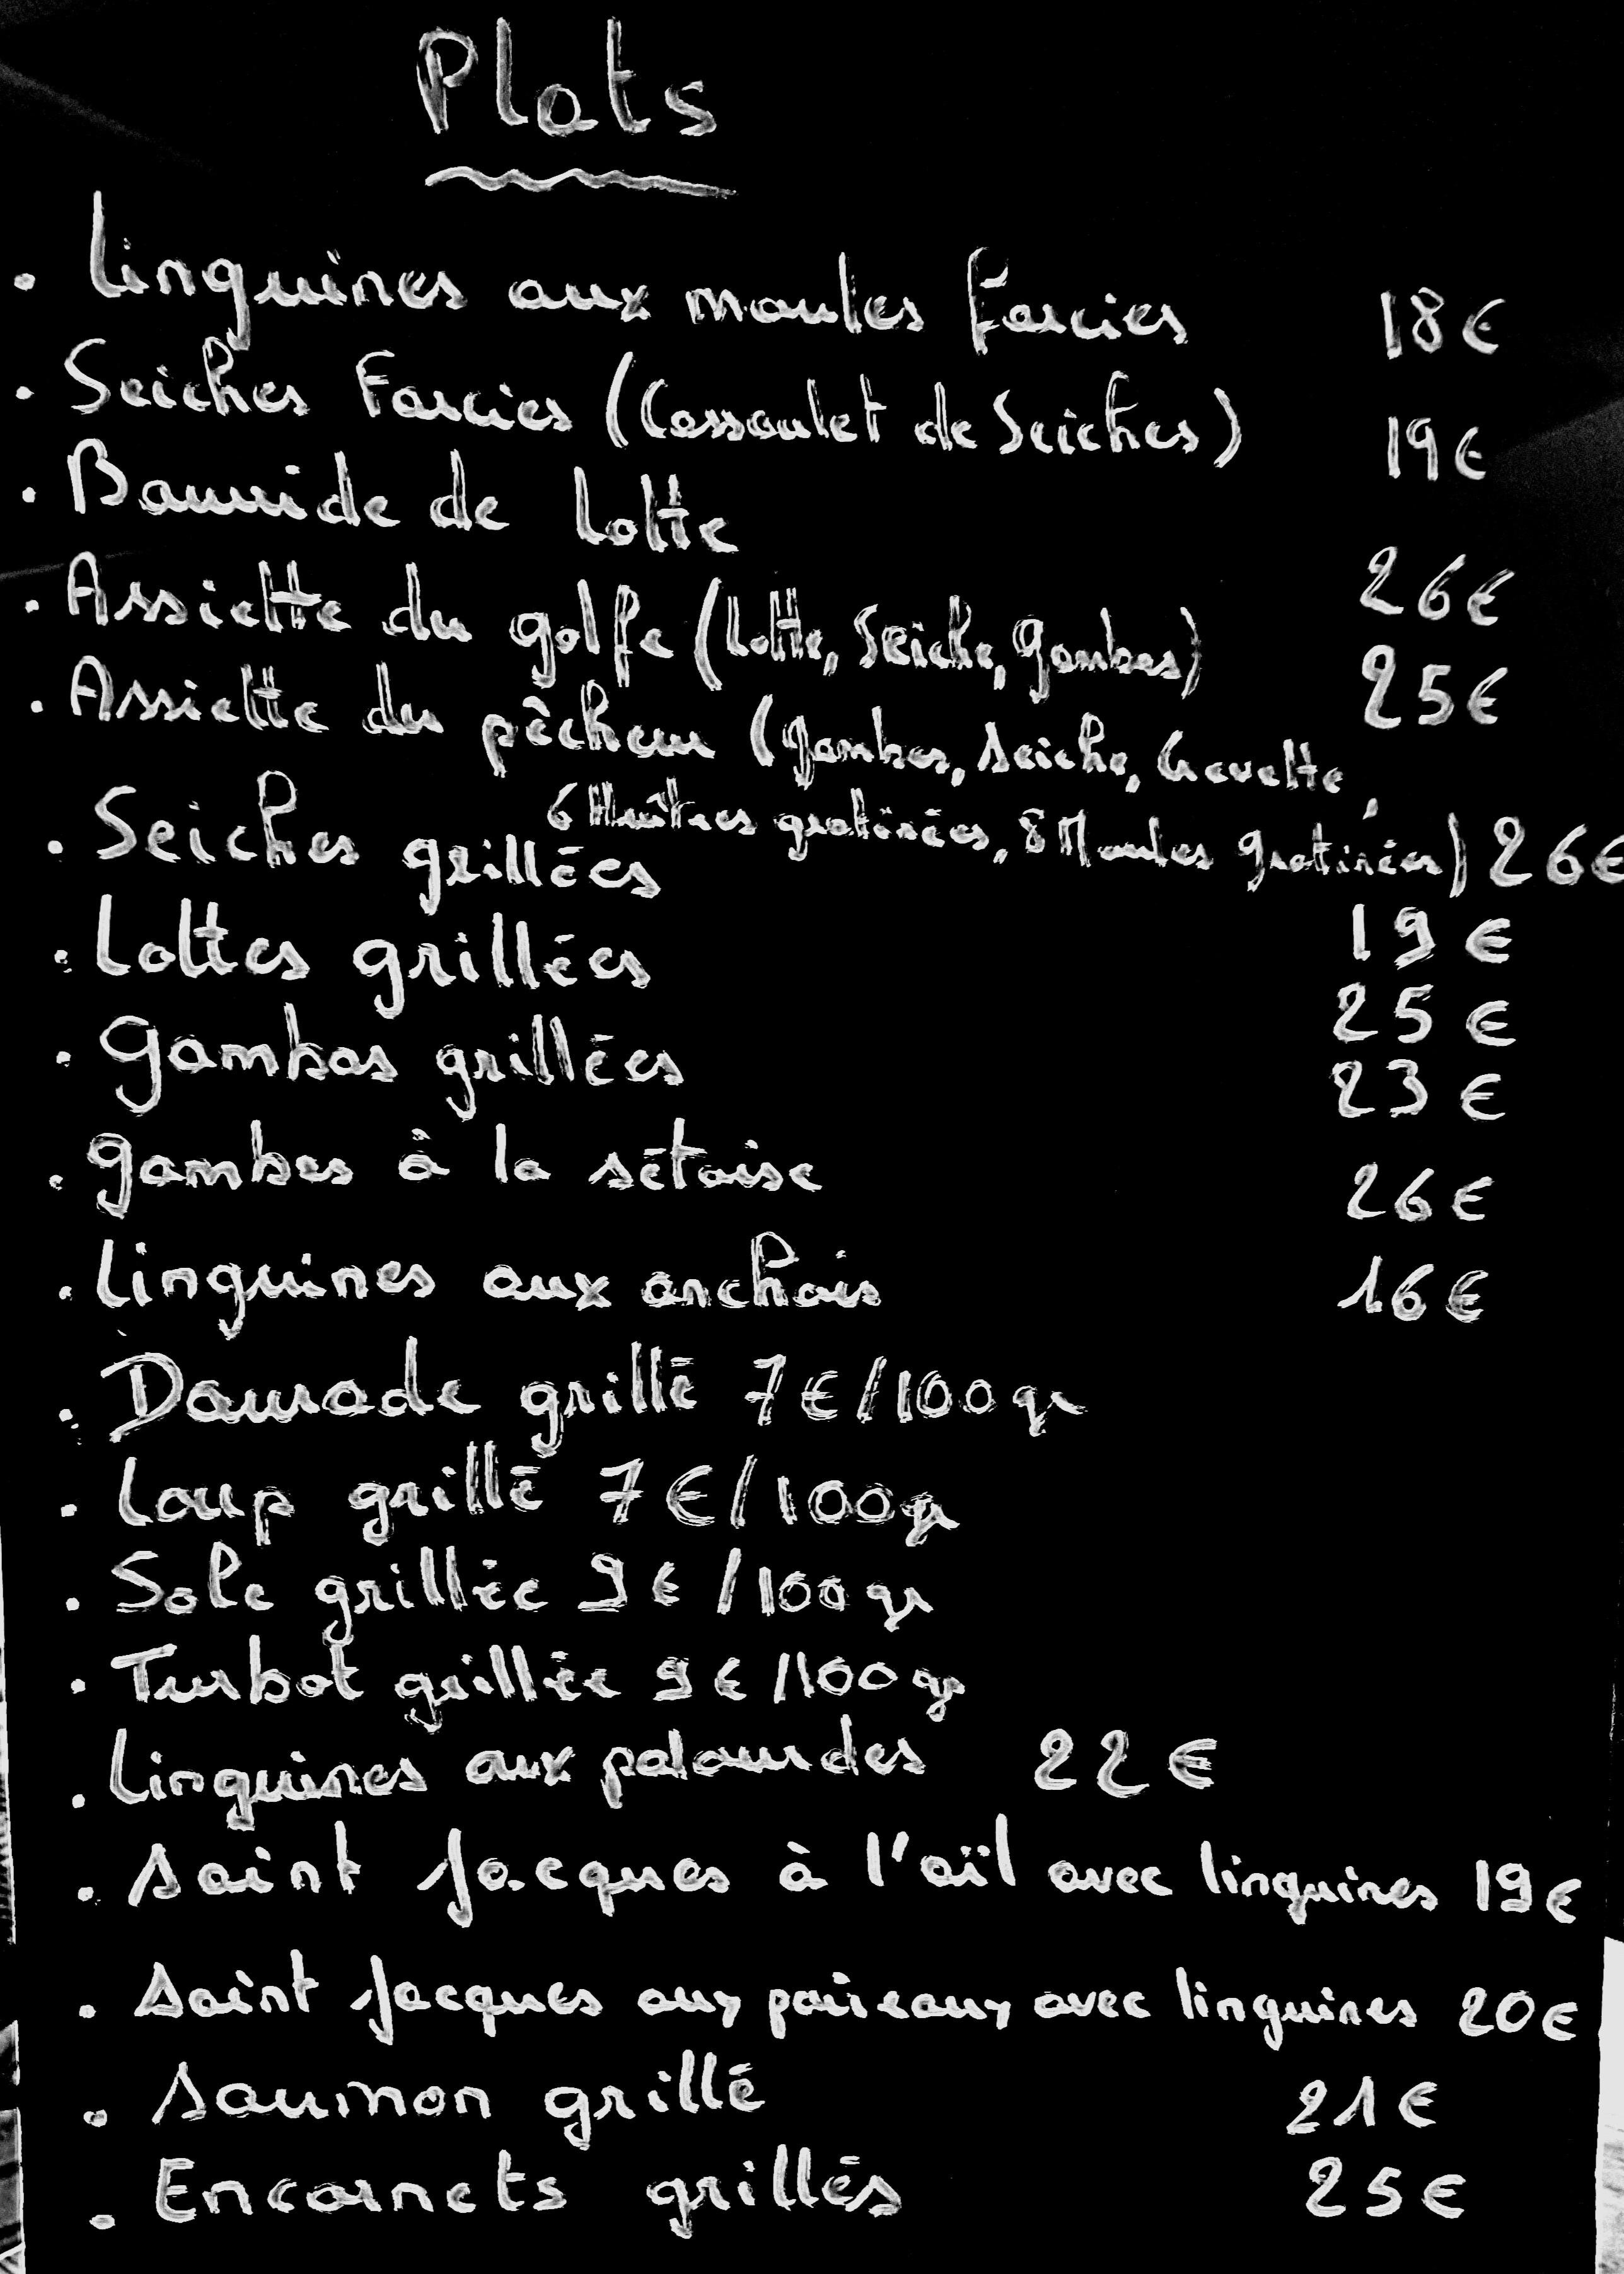 Plats
. Linguines aux moules farcies 18€
. Seiches Farcies (Cassoulet de Seiches) 19€
. Bourride de Lotte 26€
. Assiette du golfe (Lotte, Seiche, gambas) 25€
. Assiette du pêcheur (gambas, seiche, Crevette,
6 Huîtres gratinées, 8 Moules gratinées) 26€
. Seiches grillées 19€
. Lottes grillées 25€
. Gambas grillées 23€
. gambas à la sétoise 26€
. Linguines aux anchois 16€
. Daurade grillé 7€/100gr
. Loup grillé 7€/100gr
. Sole grillée 9€/100gr
. Turbot grillée 9€/100gr
. Linguines aux palourdes 22€
. Saint Jacques à l'aïl avec linguines 19€
. Saint Jacques aux poireaux avec linguines 20€
. Saumon grillé 21€
. Encornets grillés 25€